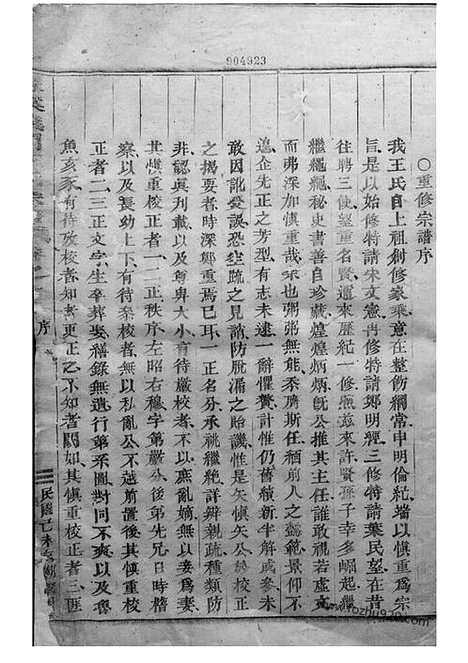 904923
○重修宗譜序
我王氏自上祖創修家乘意在整飭綱常申明倫紀墻以慎重爲宗
旨是以始修特請朱文憲再修特請鄭明經三修特請葉民望在昔
往聘三使望重名賢邇來歷紀一修熊兹來許賢孫子幸多崛起繼
繼繩繩秘吏書善自珍藏煌煌炳炳旣公推其主任誰敢視若虛文
而弗深加慎重哉宗也粥粥無能忝膺斯任緬前人之懿範景仰不
追企先正之芳型有志未逮一辭懼贊計惟仍舊續新半解成參未
敢因訛受誤恐生疏之見誚防脫漏之貽譏惟是矢慎矢公於校正
之撮要者時深鄭重焉已耳一正名分承祧繼絶詳辯親疏種類防
非認眞刋載以及尊卑大小有待嚴校者不以庶亂嫡無以妾爲妻
其慎重校正者一二正秩序左昭右穆字第嚴分後弟先兄日時稽
察以及長幼上下有待叅校者無以私亂公不越前置後其慎重校
正者二三正文字生卒葬娶繕錄無遺行第系圖對同不爽以及魯
魚亥豕有待放校者知者更正之不知者闕如其慎重校正者三匪
序
www.rozhu920.com